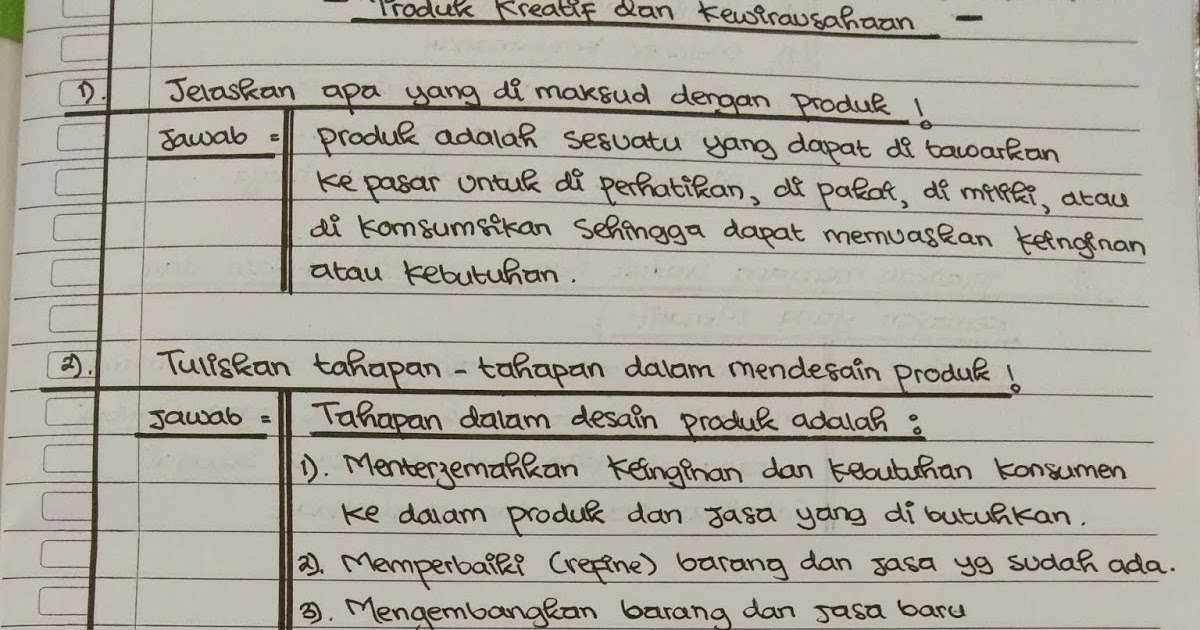 - Produk Kreatif dan Kewirausahaan -
1). Jelaskan apa yang di maksud dengan produk !
Jawab = produk adalah sesuatu yang dapat di tawarkan
ke pasar untuk di perhatikan, di pakai, di miliki, atau
di komsumsikan sehingga dapat memuaskan keinginan
atau kebutuhan.
2). Tuliskan tahapan - tahapan dalam mendesain produk !
Jawab = Tahapan dalam desain produk adalah :
1). Menterjemahkan keinginan dan kebutuhan konsumen
ke dalam produk dan jasa yang di butuhkan.
2). Memperbaiki (refine) barang dan jasa yg sudah ada.
3). Mengembangkan barang dan jasa baru